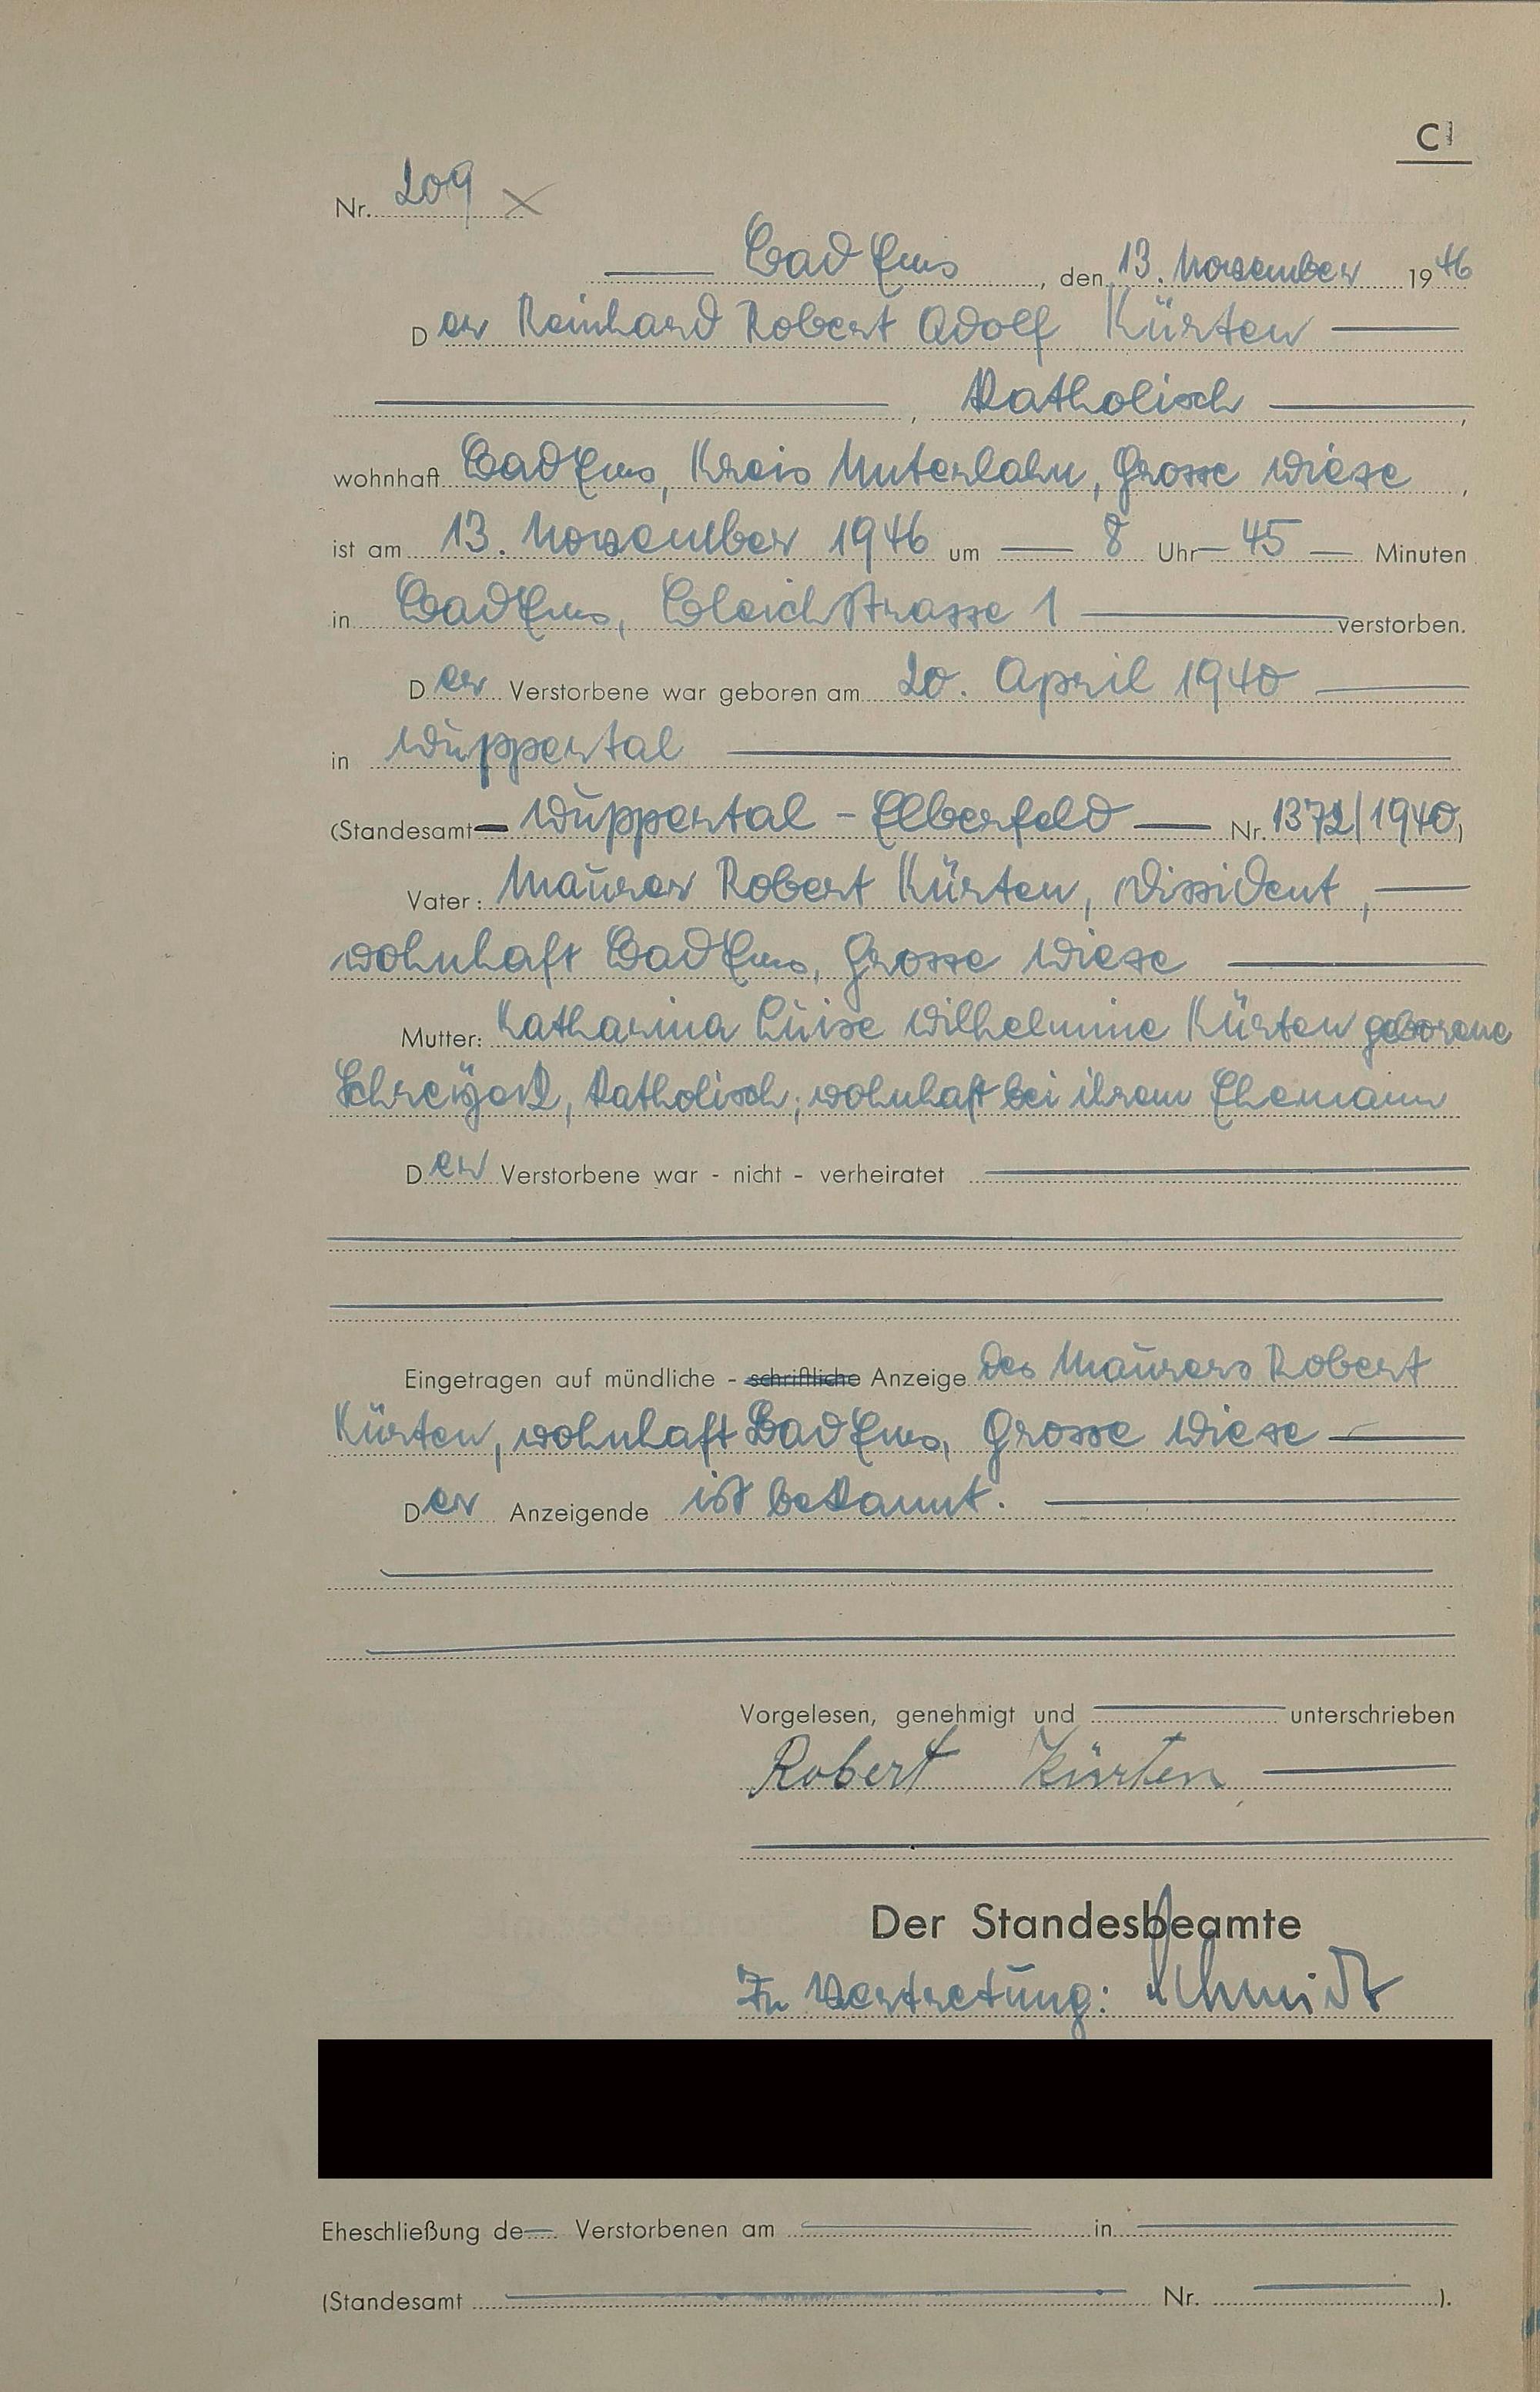 C
Nr. 209
Bad Ems, den 13. November 1946
Der Reinhard Robert Adolf Kürten
, Katholisch,
wohnhaft Bad Ems, Kreis Unterlahn, Grosse Wiese,
ist am 13. November 1946 um 8 Uhr 45 Minuten
in Bad Ems, Bleichstrasse 1 verstorben.
Der Verstorbene war geboren am 20. April 1940
in Wuppertal
(Standesamt Wuppertal - Elberfeld Nr. 1372/1940)
Vater: Maurer Robert Kürten, Dissident,
wohnhaft Bad Ems, Grosse Wiese
Mutter: Katharina Luise Wilhelmine Kürten geborene
Schreyeck, Katholisch, wohnhaft bei ihrem Ehemann
Der Verstorbene war - nicht - verheiratet
Eingetragen auf mündliche - schriftliche Anzeige des Maurers Robert
Kürten, wohnhaft Bad Ems, Grosse Wiese
Der Anzeigende ist bekannt.
Vorgelesen, genehmigt und unterschrieben
Robert Kürten
Der Standesbeamte
In Vertretung: Schmidt
Eheschließung de Verstorbenen am in
(Standesamt Nr. ).